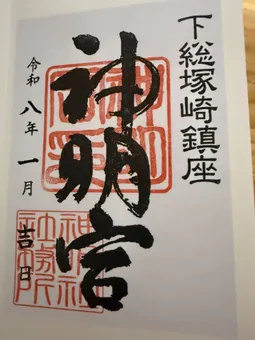 下総塚崎鎮座
神明宮
令和八年一月吉日